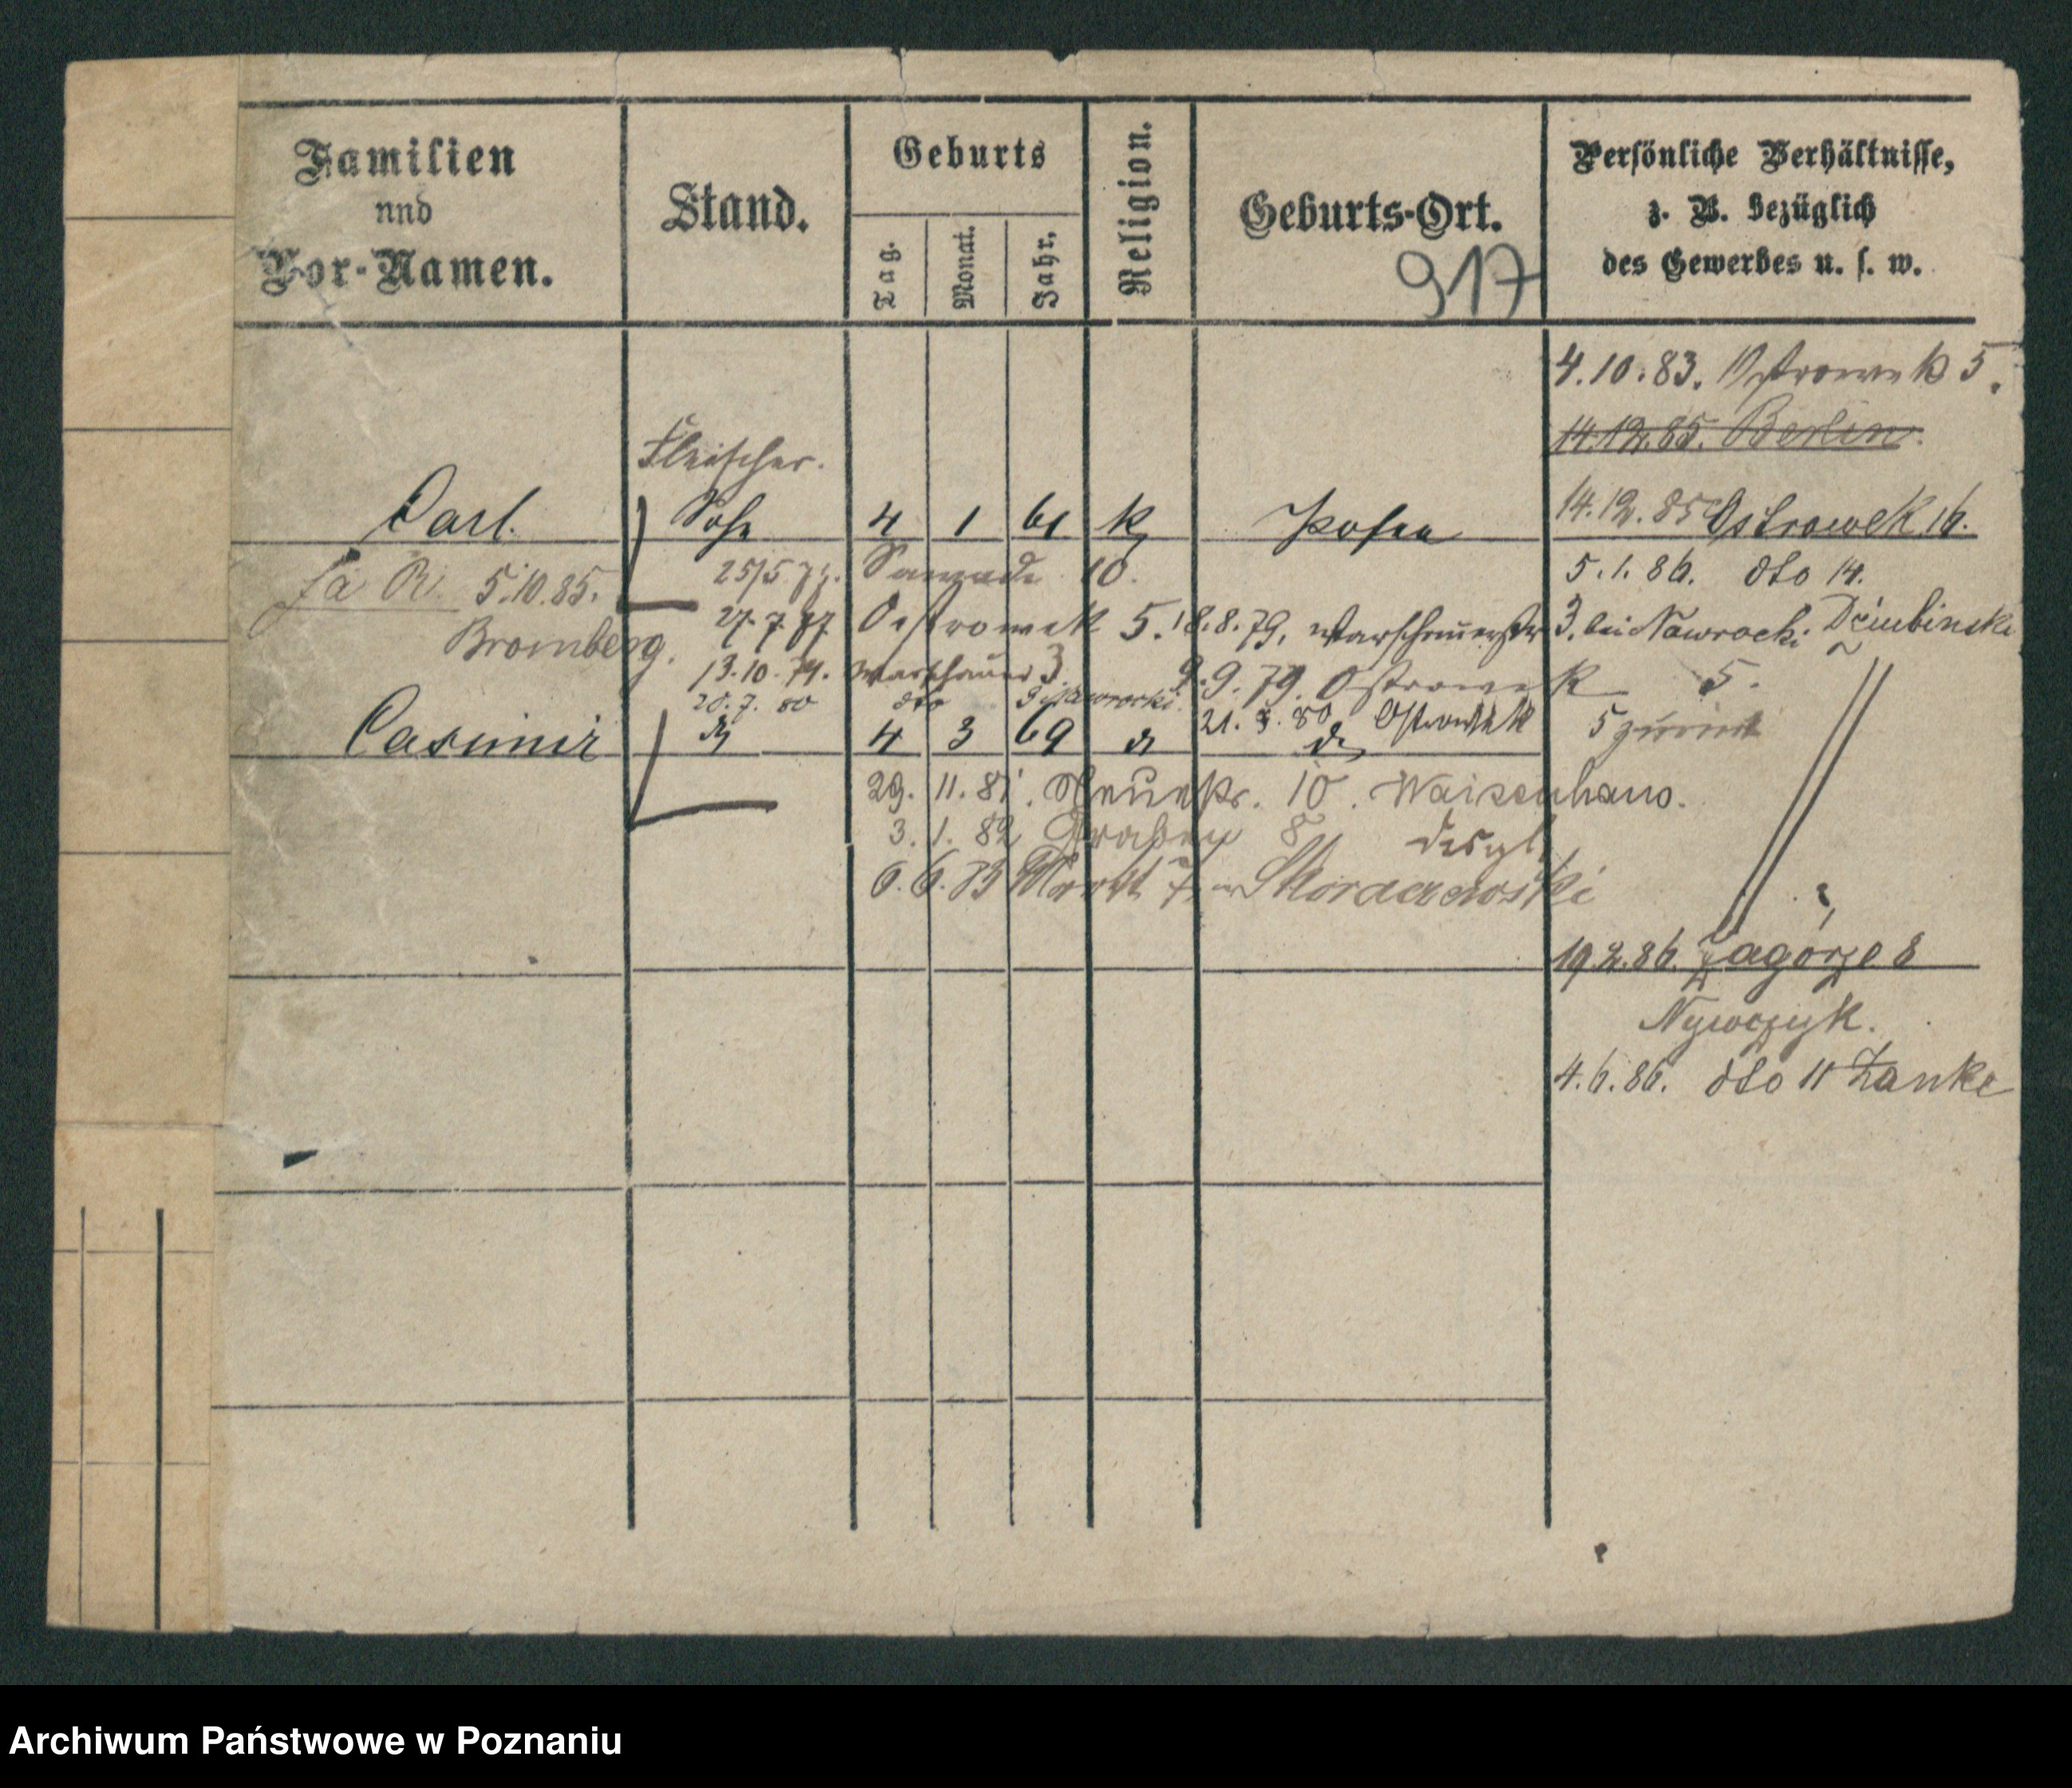 Familien
und
Vor-Namen.
Stand.
Geburts
Tag.
Monat.
Jahr.
Religion.
Geburts-Ort.
917
Persönliche Verhältnisse,
z. B. bezüglich
des Gewerbes u. s. w.
4.10.83. Ostrowek 5.
14.12.85. Berlin.
Fleischer.
Carl. Sohn 4 1 61 k Posen 14.12.85 Ostrowek 16.
5.10.85. 25/5 10. 5.1.86. dto 14.
Bromberg. Ostrowek 5. 18.8.79. Warschauerstr 3. bei Nawrocki
13.10.79. Warschauer 3. 9.9.79. Ostrowek 5.
20.7.80 dto 21. 80 Ostrowek 5 zurück
Casimir 4 3 69
29. 11. 81. 10. Waisenhaus.
3. 1. 82 Graben 8 desgl.
6. 6. Markt 7
19.2.86. Zagórze 8
4.6.86. dto 11 Zanke
Archiwum Państwowe w Poznaniu